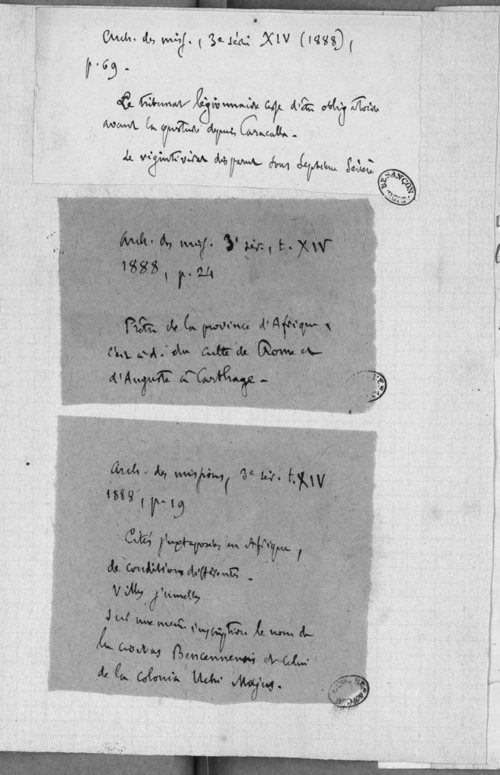 Arch. des miss., 3e série XIV (1888),
p. 69.
Le tribunat légionnaire cesse d'être obligatoire
avant la questure depuis Caracalla.
Le vigintivirat disparaît sous Septime Sévère
BESANÇON
Arch. des miss. 3e sér., t. XIV
1888, p. 24
Prêtre de la province d'Afrique,
c'est à d. du culte de Rome et
d'Auguste à Carthage.
Arch. des missions, 3e sér. t. XIV
1888, p. 19
Cités juxtaposées en Afrique,
de conditions différentes.
Villes jumelles
Sur une même inscription le nom de
la civitas Bencennensis et celui
de la colonia Uchi Majus.